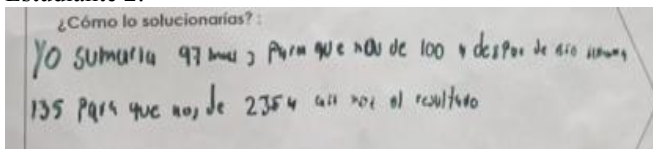 Estudiante 2:
¿Cómo lo solucionarías? :
Yo sumaria 97 mas 3 para que nos de 100 y despues de eso
135 para que nos de 2354 asi nos el resultado